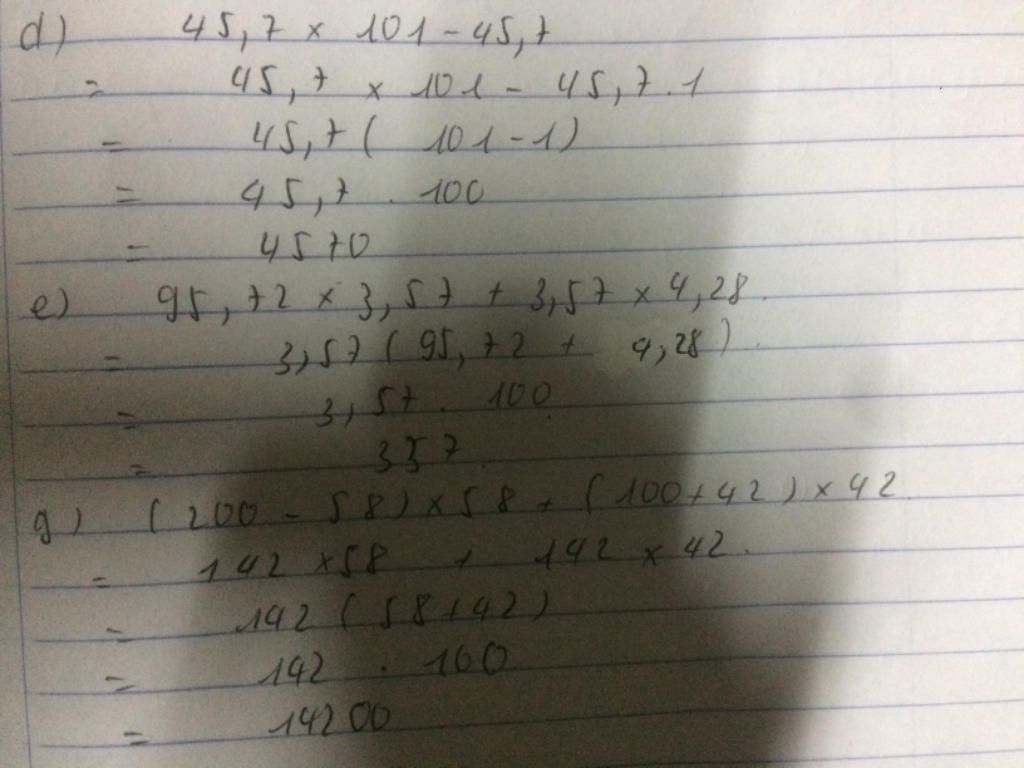 d) 45,7 × 101 - 45,7
= 45,7 × 101 - 45,7 . 1
= 45,7 ( 101 - 1)
= 45,7 . 100
= 4570
e) 95,72 × 3,57 + 3,57 × 4,28.
= 3,57 ( 95,72 + 4,28) .
= 3,57 . 100
= 357
g) ( 200 - 58 ) × 58 + ( 100 + 42 ) × 42
= 142 × 58 + 142 × 42.
= 142 ( 58 + 42 )
= 142 . 100
= 14200